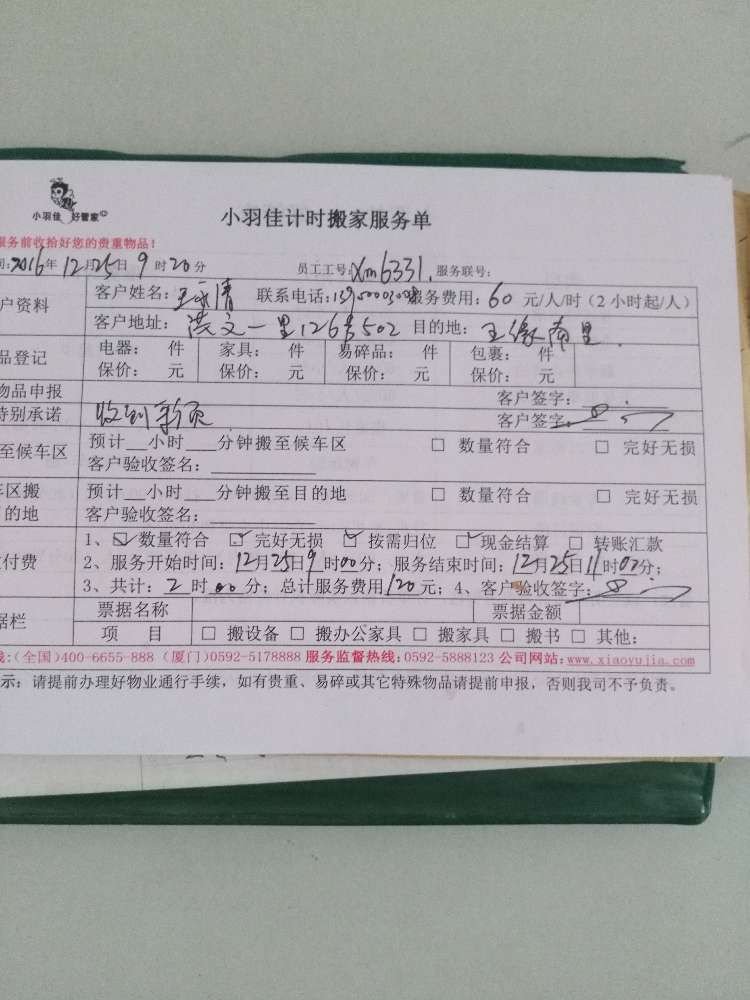 小羽佳 好管家
小羽佳计时搬家服务单
服务前收拾好您的贵重物品!
间:2016年12月25日9时20分 员工工号:Xm6331. 服务联号:
户资料 客户姓名: 联系电话: 服务费用:60元/人/时(2小时起/人)
客户地址:洪文一里126号502 目的地:
品登记 电器: 件 家具: 件 易碎品: 件 包裹: 件
保价: 元 保价: 元 保价: 元 保价: 元
物品申报 客户签字:
特别承诺 收到 客户签字:
至候车区 预计__小时___分钟搬至候车区 □ 数量符合 □ 完好无损
客户验收签名:
车区搬 预计__小时___分钟搬至目的地 □ 数量符合 □ 完好无损
的地 客户验收签名:
1、☑数量符合 ☑完好无损 ☑按需归位 ☑现金结算 □ 转账汇款
付费 2、服务开始时间:12月25日9时00分;服务结束时间:12月25日11时02分;
3、共计:2时00分;总计服务费用120元;4、客户验收签字:
据栏 票据名称 票据金额
项 目 □ 搬设备 □ 搬办公家具 □ 搬家具 □ 搬书 □ 其他:
线:(全国)400-6655-888 (厦门)0592-5178888 服务监督热线:0592-5888123 公司网站:www.xiaoyujia.com
示:请提前办理好物业通行手续,如有贵重、易碎或其它特殊物品请提前申报,否则我司不予负责。